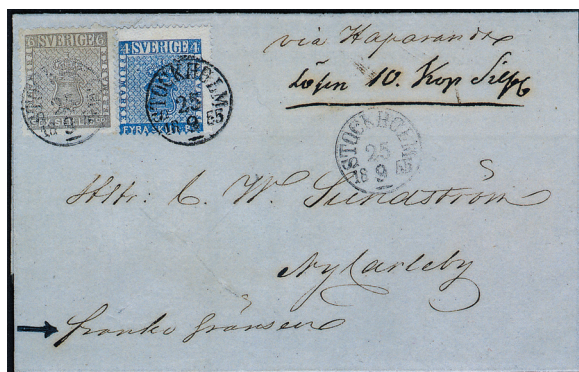 6 SVERIGE 6
4 SVERIGE 4
FYRA
STOCKHOLM
25
9
18 55
via Haparanda
Lösen 10. Kop Silfv
STOCKHOLM
25
18 9 55
C. W. Sundström
Nykarleby
franko gränsen